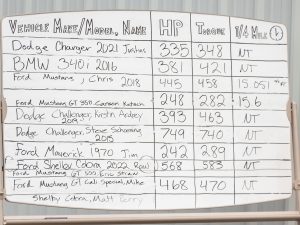 VEHICLE MAKE/MODEL, NAME HP TORQUE 1/4 MILE
Dodge Charger 2021 Joshua 335 348 NT
BMW 340i 2016 381 421 NT
Ford Mustang, Chris 2018 445 458 15.051
Ford Mustang GT 350 Carson 248 282 15.6
Dodge Challenger, Audrey 393 463 NT
Dodge Challenger, Steve 2015 749 740 NT
Ford Maverick 1970 Tim 242 289 NT
Ford Shelby Cobra 2022 568 583 NT
Ford Mustang GT 500 Eric
Ford Mustang GT Cali Special, Mike 468 470 NT
Shelby Cobra, Matt Terry